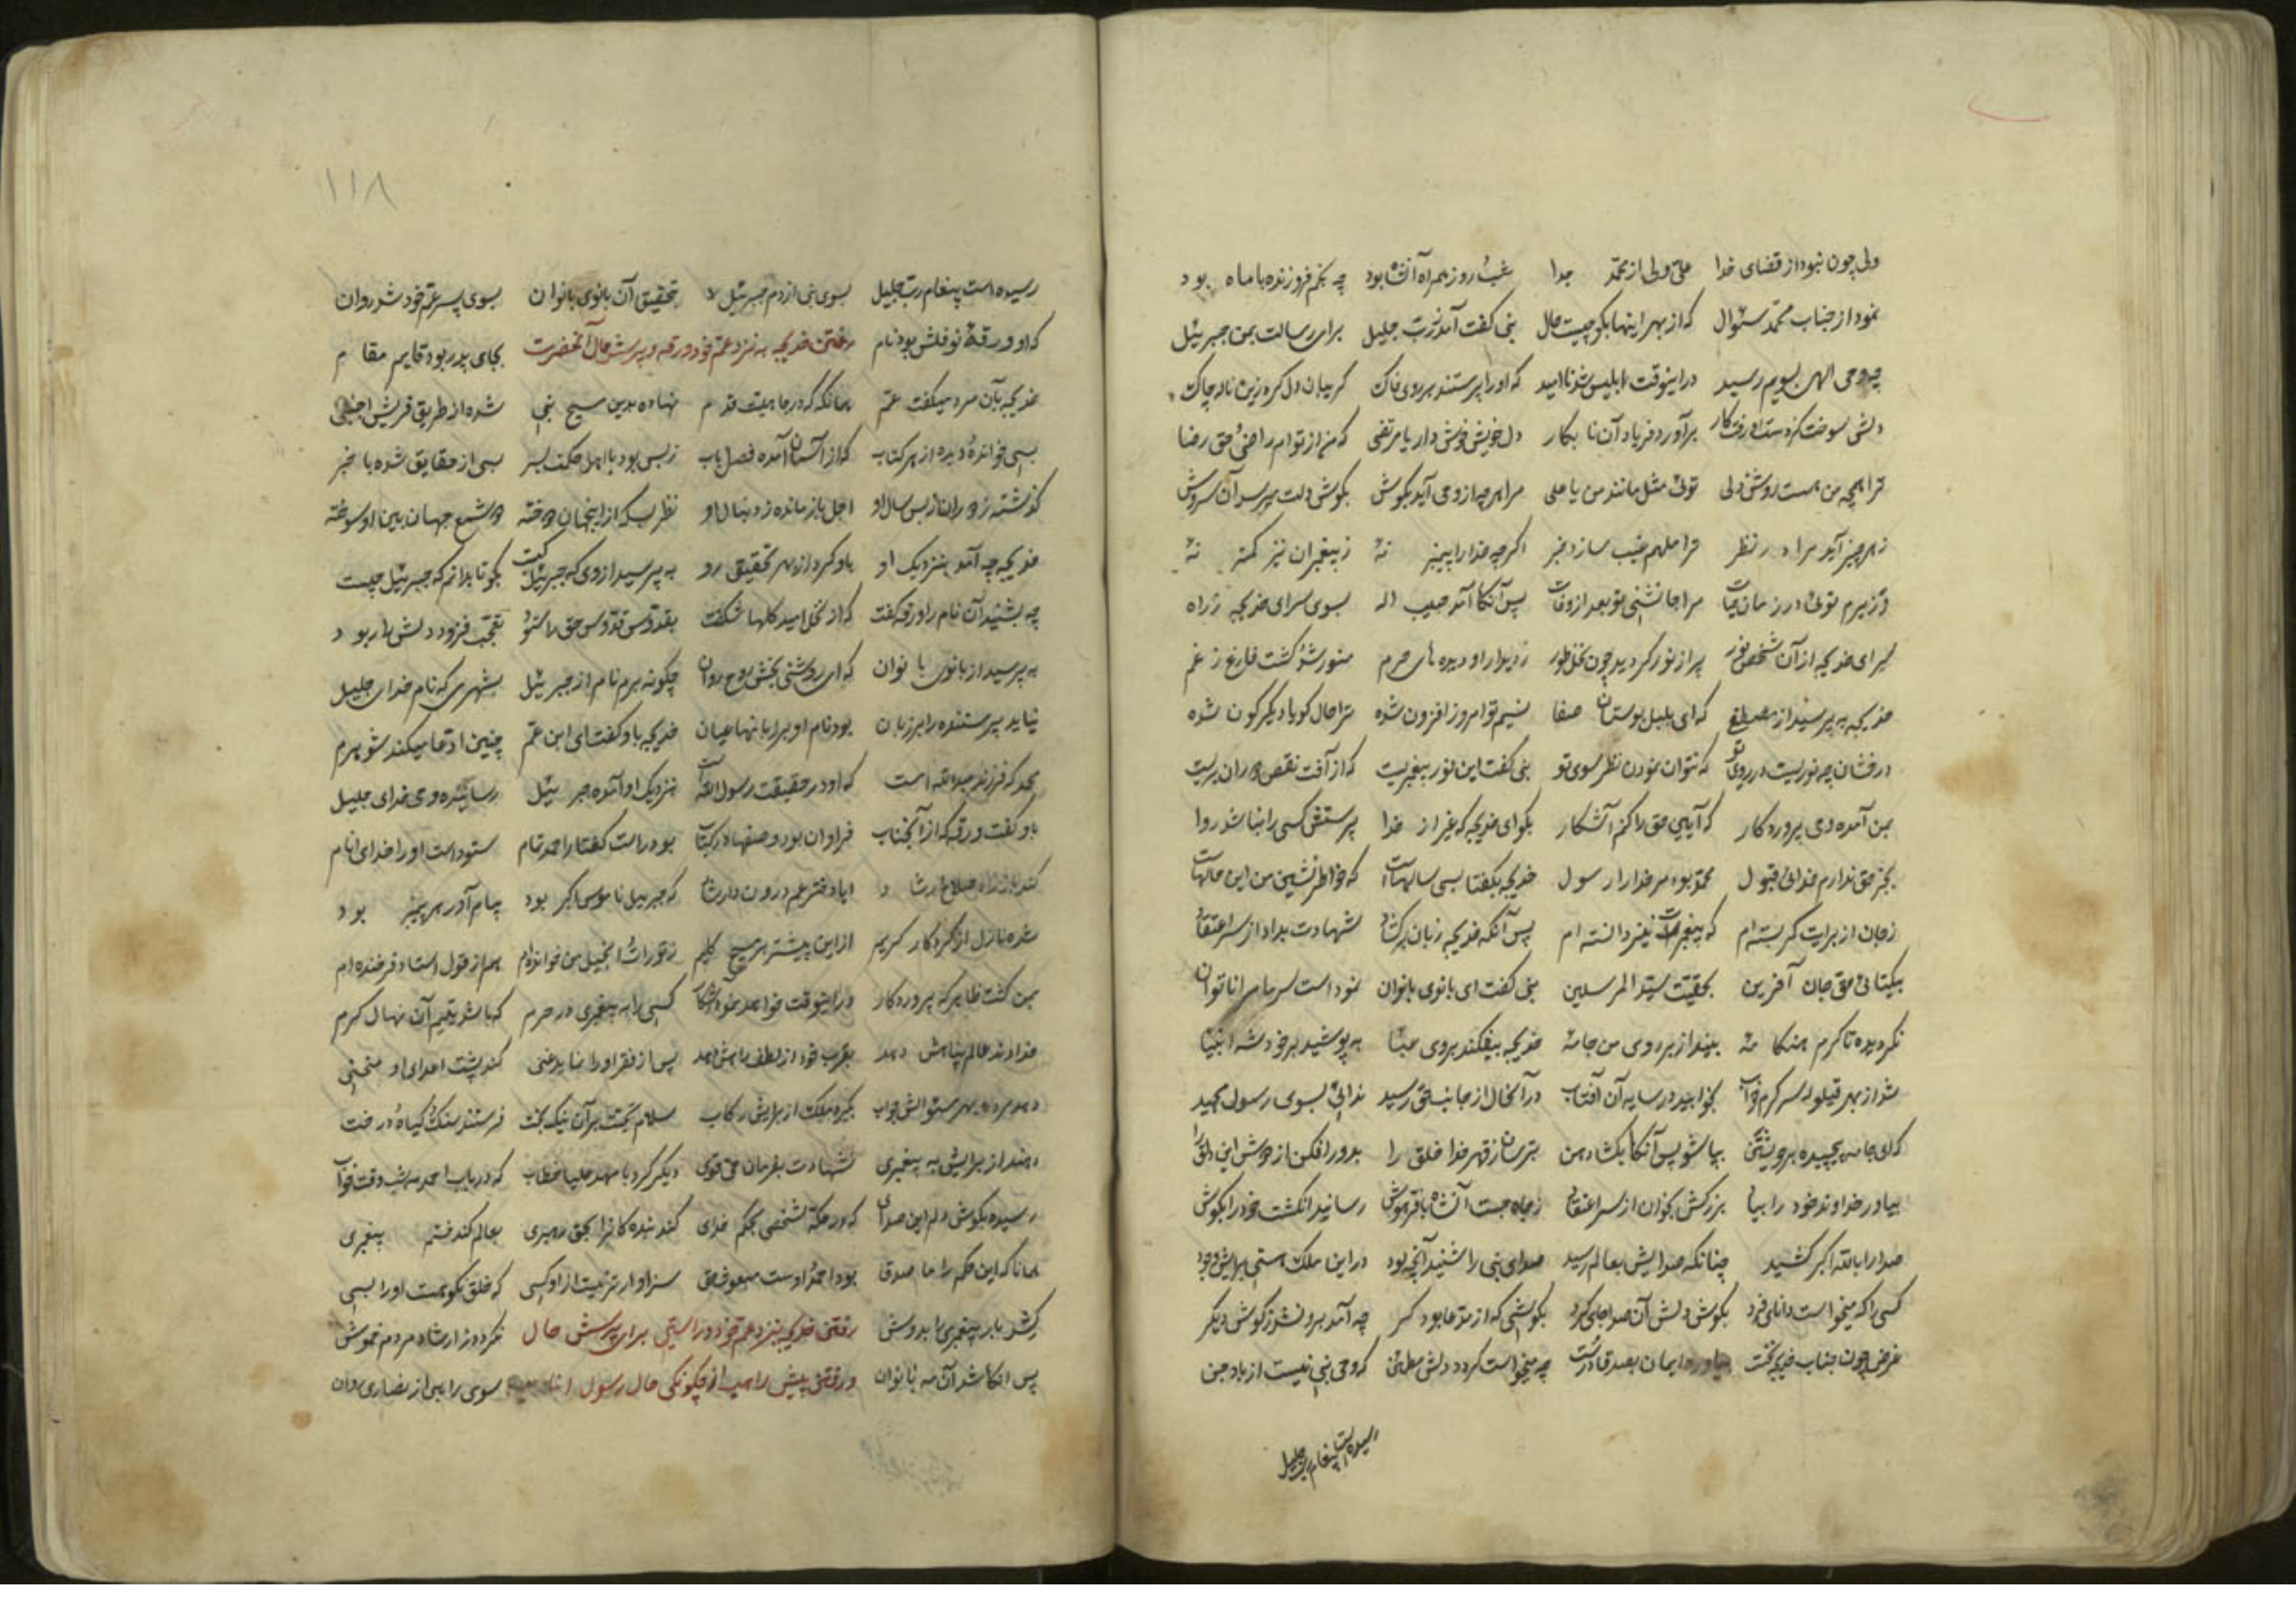 ولی چون نبود از قضای خدا علی ولی از محمد جدا شب و روز همراه آنشاه بود چه نجم فروزنده با ماه بود
نمود از جناب محمد سئوال که از بهر اینها بگو چیست حال نبی گفت آمد ز رب جلیل برای رسالت بمن جبرئیل
چه وحی الهی بسویم رسید در اینوقت ابلیس شد ناامید که او را پرستند بر روی خاک گریبان دل کرده زین ناله چاک
دلش سوخت کز دست او رفت کار برآورد فریاد آن نابکار دل خویش خوش دار یا مرتضی که من از توام راضی و حق رضا
ترا همچه من هست روشن دلی توئی مثل مانند من یا علی مرا هر چه از وحی آید بگوش بگوش دلت میرسد آن سروش
ز هر چیز آید مرا در نظر ترا ملهم غیب سازد خبر اگر چه خدا را پیمبر نهٔ ز پیغمبران نیز کمتر نهٔ
وزیرم توئی در زمان حیات مرا جانشینی تو بعد از وفات پس آنگاه آمد حبیب اله بسوی سرای خدیجه ز راه
سرای خدیجه از آن شخص نور پر از نور گردید چون نخل طور ز دیدار او دیده های حرم منور شد و گشت فارغ ز غم
خدیجه به پرسید از مصطفی که ای بلبل بوستان صفا نسیم تو امروز افزون شده ترا حال گویا دیگرگون شده
درفشان چه نوریست در روی تو که نتوان نمودن نظر سوی تو نبی گفت این نور پیغمبریست که از آفت نقص دوران بریست
بمن آمده وحی پروردگار که آیین حق را کنم آشکار بگو ای خدیجه که غیر از خدا پرستش کسی را نباشد روا
بجز حق ندارم خدائی قبول محمد بود مر خدا را رسول خدیجه بگفتا بسی سالهاست که خاطر نشین من این حالهاست
ز جان از برایت کمر بسته ام که پیغمبرت نیز دانسته ام پس آنگه خدیجه زبان برگشاد شهادت بداد از سر اعتقاد
بیکتائی حق جان آفرین بحقیت سید المرسلین نبی گفت ای بانوی بانوان نموداست سرما مرا ناتوان
نگردیده تا گرم هنگامهٔ بینداز بر روی من جامهٔ خدیجه بیفکند بر وی عبا به پوشید بر خود شه انبیا
شد از بهر قیلوله سر گرم خواب بخوابید در سایه آن آفتاب در آنحال از جانب حق رسید ندائی بسوی رسول مجید
که ای جامه پیچیده بر خویشتن بپا شو پس آنگاه بگشا دهن بترسان ز قهر خدا خلق را بدور افکن از دوش این دلق را
بیاور خداوند خود را بیاد بزرگش بخوان از سر اعتقاد ز جا جست آنشاه با فر و هوش رسانید انگشت خود را بگوش
صدا را بالله اکبر کشید چنانکه صدایش بعالم رسید صدای نبی را شنید آنچه بود در این ملک هستی برایش وجود
کسی را که میخواست دانای فرد بگوش دلش آن صدا جای کرد بگوشی که از مدعا بود کر چه آمد برون شد ز گوش دیگر
غرض چون جناب خدیجه نخست بیاورد ایمان بصدقا درست چه میخواست گردد دلش مطمئن که وحی نبی نیست از باد جن
رسیده است پیغام رب جلیل
۱۱۸
رسیده است پیغام رب جلیل بسوی نبی از دم جبرئیل بتحقیق آن بانوی بانوان بسوی پسر عم خود شد روان
که او ورقهٔ نوفلش بود نام رفتن خدیجه به نزد عم خود ورقه و پرسش حال آنحضرت بجای پدر بود قایم مقام
خدیجه بآن مرد میگفت عم همانکه که در جاهلیت قدم نهاده بدین مسیح نبی شده از طریق قریش اجنبی
بسی خوانده و دیده از هر کتاب که از آسمان آمده فصل باب ز بس بود با اهل حکمت بسر بسی از حقایق شده با خبر
گذشته ز دوران ز بس سال او اجل باز مانده ز دنبال او نظر بسکه از اینجهان دوخته دو شمع جهان بین او سوخته
خدیجه چه آمد بنزدیک او باو کرد از بهر تحقیق رو به پرسید از وی که جبریل کیست بگو تا بدانم که جبرئیل چیست
چه بشنید آن نام را ورقه گفت که از نخل امید گلها شگفت بقدوس قدوس حق را ستود تعجب فزود دلش را ربود
به پرسید از بانوی بانوان که ای روشنی بخش روح روان چگونه برم نام از جبرئیل بشهری که نام خدای جلیل
نیاید پرستنده را بر زبان بود نام او برابا نها عیان خدیجه باو گفت ای ابن عم چنین ادعا میکند شوهرم
محمد که فرزند عبدالله است که او در حقیقت رسول الله است بنزدیک او آمده جبرئیل رساننده وحی خدای جلیل
باو گفت ورقه که از آنجناب فراوان بود وصفها در کتاب بود راست گفتار احمد تمام ستوده است او را خدای انام
کند باز راه صلاح رشاد ایا دختر عم درون دار شاد که جبریل ناموس اکبر بود پیام آور هر پیمبر بود
شده نازل از کردگار کریم از این پیشتر بر مسیح کلیم ز تورات و انجیل من خوانده ام هم از قول استاد فرخنده ام
بمن گشت ظاهر که پروردگار در اینوقت خواهد نمود آشکار کسی را به پیغمبری در حرم که باشد یتیم آن نهال کرم
خداوند عالم پناهش دهد بقرب خود از لطف راهش دهد پس از فقر او را نماید غنی کند پشت اعدای او منحنی
دهد مرده بهر سئوالش جواب بگیرد ملک از برایش رکاب سلام تحیت بر آن نیک بخت فرستند سنگ و گیاه و درخت
دهند از برایش به پیغمبری شهادت بفرمان حق قوی دیگر کرد با مهد علیا خطاب که در باب احمد سه شب وقت خواب
رسیده بگوش دلم این صدای که در مکه شخصی بحکم خدای کند بنده کانرا بحق رهبری بعالم کند ختم پیغمبری
همانا که این حکم را ما صدق بود احمد اوست مبعوث حق سزاوارتر نیست از او کسی که خلق نکو هست او را بسی
کشد بار پیغمبری را بدوش رفتن خدیجه بنزد عم خود در راستی برای پرسش حال نگردد ز ارشاد مردم خموش
پس آنگاه شد آن مه بانوان و رفتن پیش راهب از چگونگی حال رسول سوی راهبی از نصاری روان